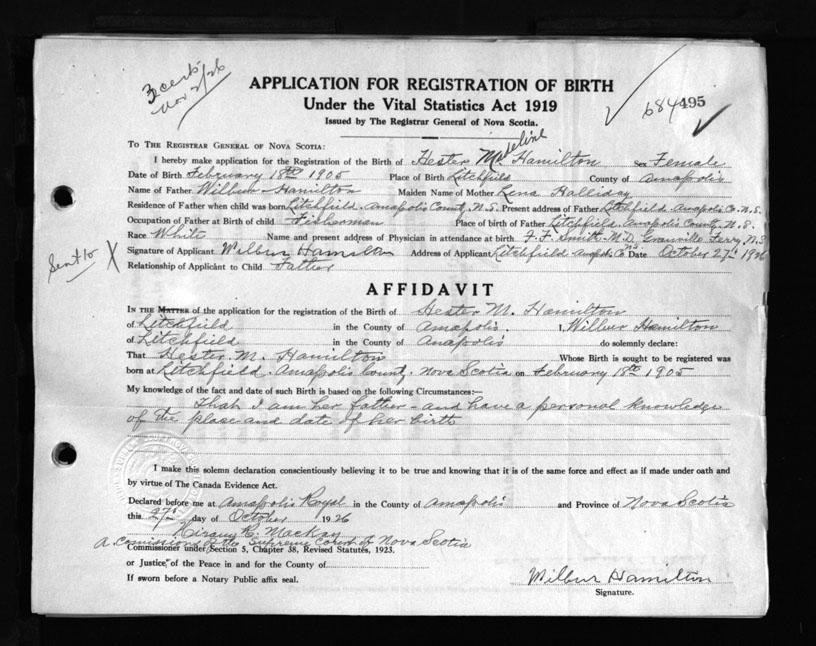 3 certs
Nov 2/26
684495
APPLICATION FOR REGISTRATION OF BIRTH
Under the Vital Statistics Act 1919
Issued by The Registrar General of Nova Scotia.
TO THE REGISTRAR GENERAL OF NOVA SCOTIA:
Madeline
I hereby make application for the Registration of the Birth of Hester M. Hamilton Sex Female
Date of Birth February 18th 1905 Place of Birth Litchfield County of Annapolis
Name of Father Wilbur Hamilton Maiden Name of Mother Lena Halliday
Residence of Father when child was born Litchfield Annapolis County, N.S. Present address of Father Litchfield Annapolis Co. N.S.
Occupation of Father at Birth of child Fisherman Place of birth of Father Litchfield Annapolis County N.S.
Race White Name and present address of Physician in attendance at birth F. F. Smith M.D. Granville Ferry, N.S
Sent to X
Signature of Applicant Wilbur Hamilton Address of Applicant Litchfield Annap. Co NS Date October 27th 1926
Relationship of Applicant to Child Father
AFFIDAVIT
IN THE MATTER of the application for the registration of the Birth of Hester M. Hamilton
of Litchfield in the County of Annapolis. I, Wilbur Hamilton
of Litchfield in the County of Annapolis do solemnly declare:
That Hester M. Hamilton Whose Birth is sought to be registered was
born at Litchfield Annapolis County, Nova Scotia on February 18th 1905
My knowledge of the fact and date of such Birth is based on the following Circumstances:—
That I am her father - and have a personal knowledge
of the place and date of her birth
I make this solemn declaration conscientiously believing it to be true and knowing that it is of the same force and effect as if made under oath and
by virtue of The Canada Evidence Act.
Declared before me at Annapolis Royal in the County of Annapolis and Province of Nova Scotia
this 27th day of October 1926
Hiram E. MacKay
A Comissioner of the Supreme Court of Nova Scotia
Commissioner under Section 5, Chapter 38, Revised Statutes, 1923.
or Justice of the Peace in and for the County of
If sworn before a Notary Public affix seal.
Wilbur Hamilton
Signature.